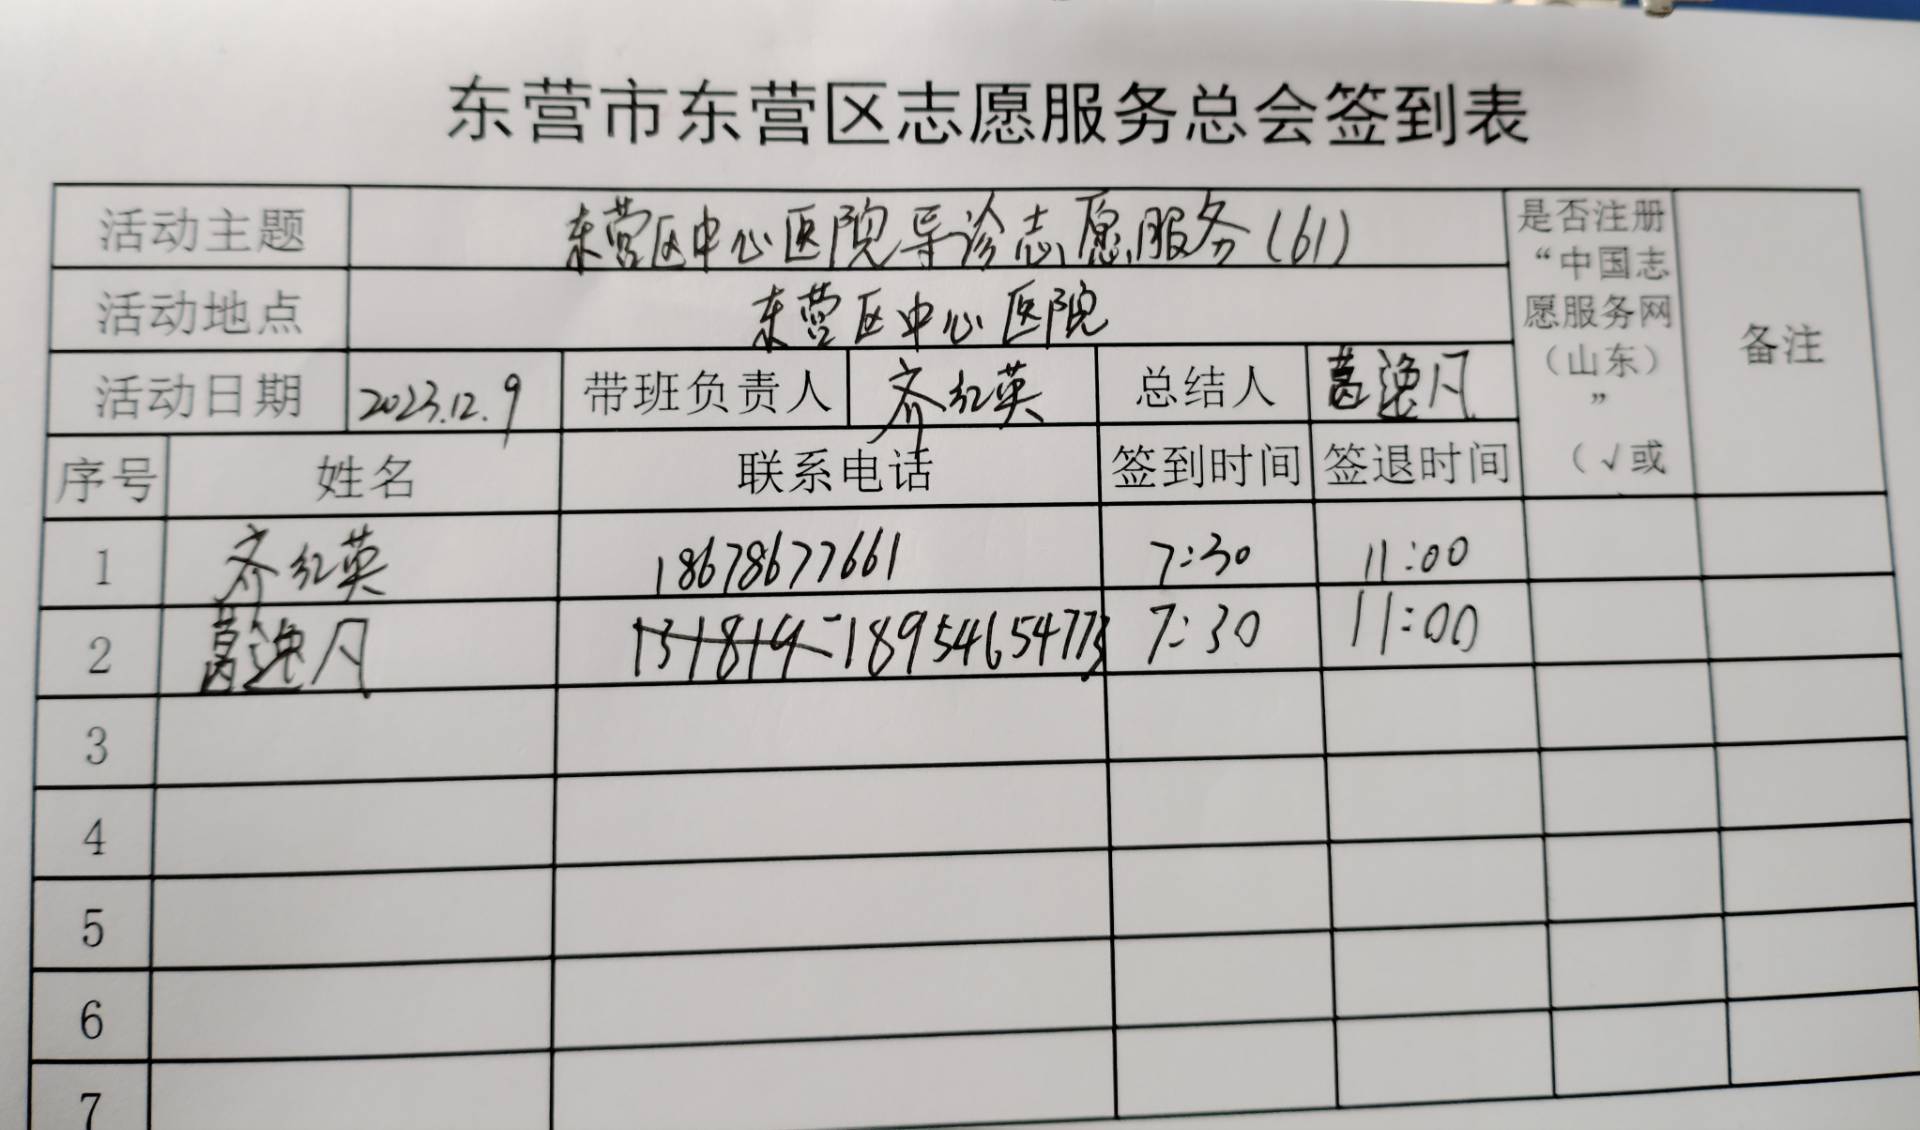 东营市东营区志愿服务总会签到表
活动主题 东营区中心医院导诊志愿服务(61) 是否注册“中国志愿服务网(山东)”(√或 备注
活动地点 东营区中心医院
活动日期 2023.12.9 带班负责人 齐红英 总结人 葛逸凡
序号 姓名 联系电话 签到时间 签退时间
1 齐红英 18678677661 7:30 11:00
2 葛逸凡 18954654773 7:30 11:00
3
4
5
6
7